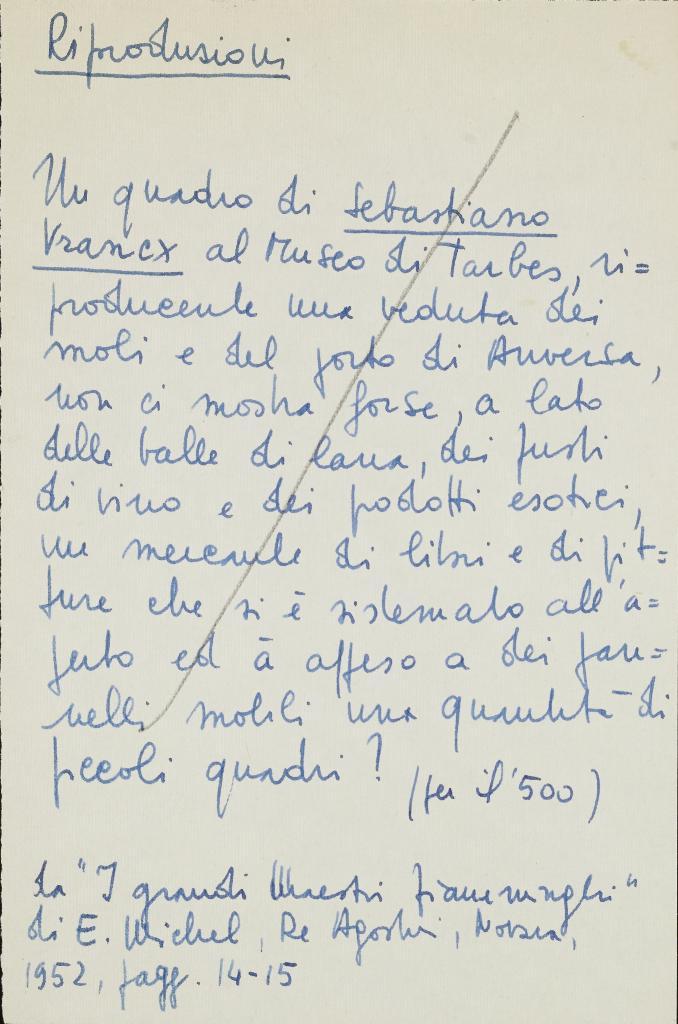 Riproduzioni
Un quadro di Sebastiano
Vrancx al Museo di Tarbes, ri=
producente una veduta dei
moli e del porto di Anversa,
non ci mostra forse, a lato
delle balle di lana, dei fusti
di vino e dei podotti esotici,
un mercante di libri e di pit=
ture che si è sistemato all'a=
perto ed à appeso a dei pan=
nelli mobili una quantità di
piccoli quadri?
(per il '500)
da "I grandi Maestri fiamminghi"
di E. Michel, De Agostini, Novara,
1952, pagg. 14-15